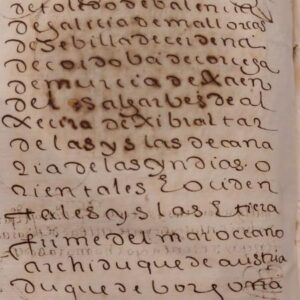 de toledo de balencia
de galicia de mallorcas
de sebilla de cerdeña
de cordoba de corcega
de murcia de Xaen
de los algarbes de al
Xecira de Xibraltar
de las yslas de cana
ria de las yndias o
rientales E ociden
tales yslas E tierra
firme del mar oceano
archiduque de austria
duque de borgoña